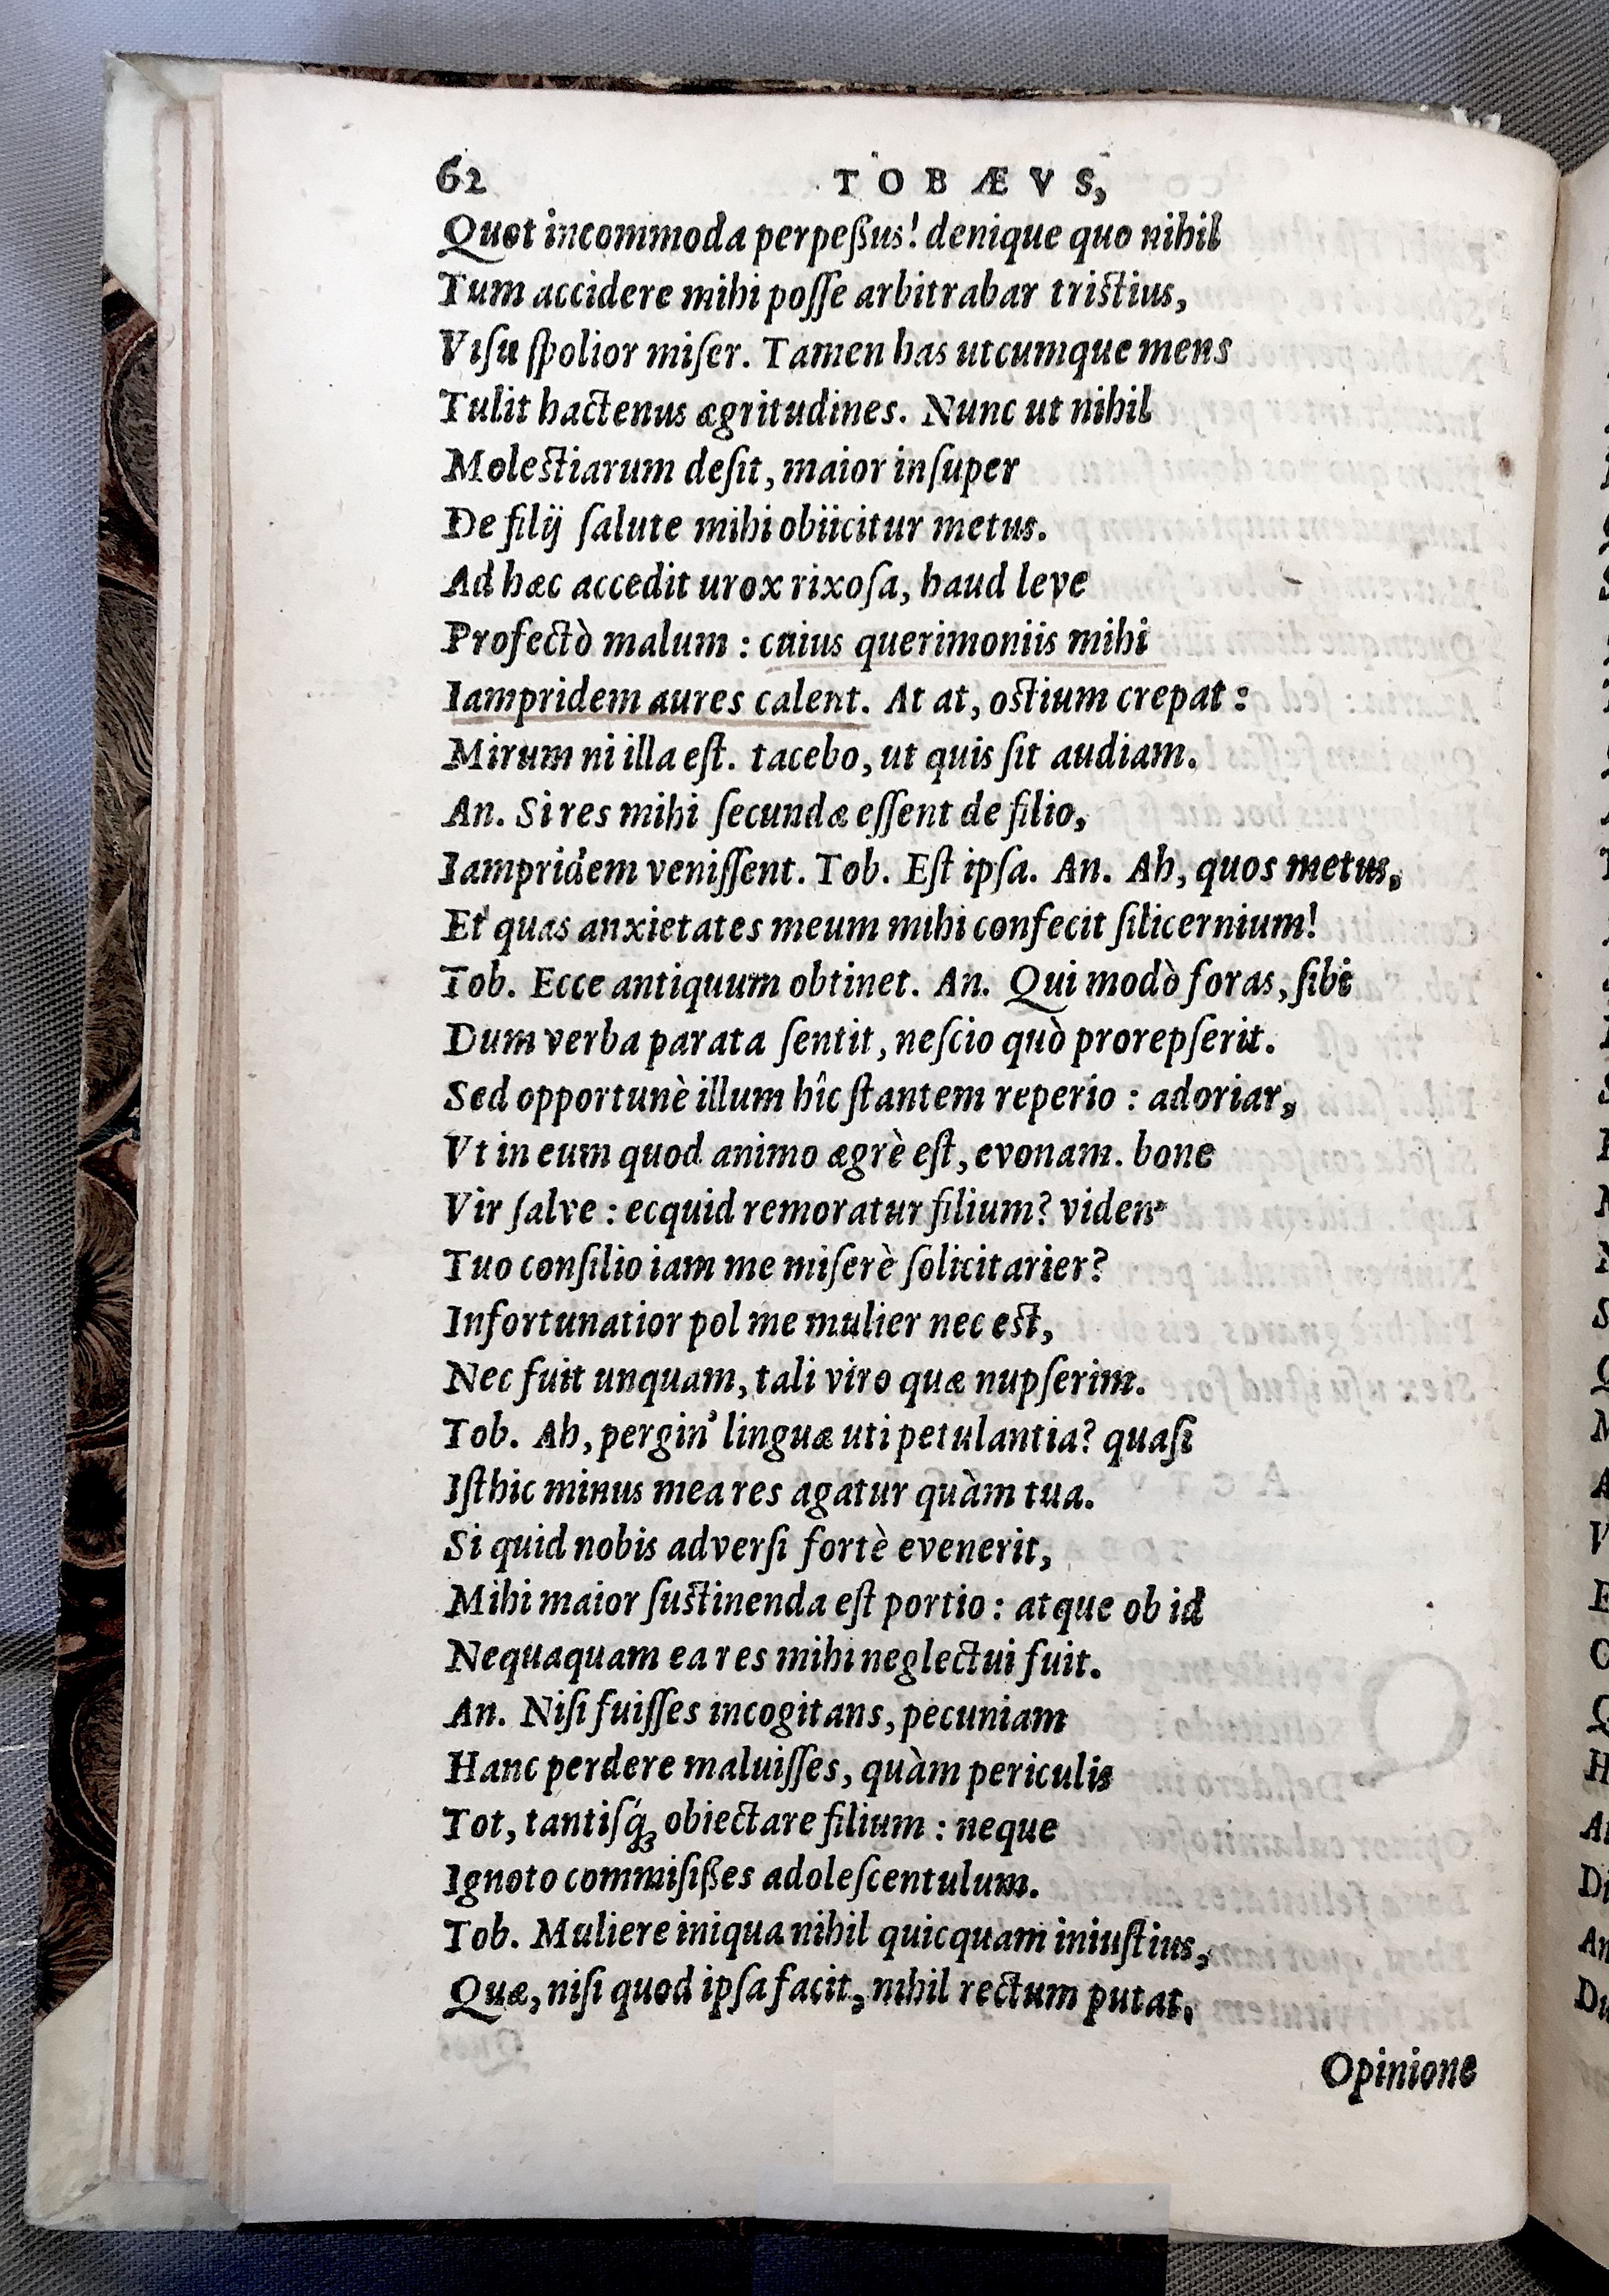 62 TOBÆVS,
Quot incommoda perpeßus! denique quo nihil
Tum accidere mihi poſſe arbitrabar triſtius,
Viſu ſpolior miſer. Tamen has utcumque mens
Tulit hactenus ægritudines. Nunc ut nihil
Moleſtiarum deſit, maior inſuper
De filij ſalute mihi obiicitur metus.
Ad hæc accedit urox rixoſa, haud leve
Profectò malum : cuius querimoniis mihi
Iampridem aures calent. At at, oſtium crepat :
Mirum ni illa eſt. tacebo, ut quis ſit audiam.
An. Si res mihi ſecundæ eſſent de filio,
Iampridem veniſſent. Tob. Eſt ipſa. An. Ah, quos metus,
Et quas anxietates meum mihi confecit ſilicernium!
Tob. Ecce antiquum obtinet. An. Qui modò foras, ſibi
Dum verba parata ſentit, neſcio quò prorepſerit.
Sed opportunè illum hîc ſtantem reperio : adoriar,
Vt in eum quod animo ægrè eſt, evonam. bone
Vir ſalve : ecquid remoratur filium? viden'
Tuo conſilio iam me miſerè ſolicitarier?
Infortunatior pol me mulier nec eſt,
Nec fuit unquam, tali viro quæ nupſerim.
Tob. Ah, pergin' linguæ uti petulantia? quaſi
Iſthic minus mea res agatur quàm tua.
Si quid nobis adverſi fortè evenerit,
Mihi maior ſuſtinenda eſt portio : atque ob id
Nequaquam ea res mihi neglectui fuit.
An. Niſi fuiſſes incogitans, pecuniam
Hanc perdere maluiſſes, quàm periculis
Tot, tantiſq́ꝫ obiectare filium : neque
Ignoto commiſißes adoleſcentulum.
Tob. Muliere iniqua nihil quicquam iniuſtius,
Quæ, niſi quod ipſa facit, nihil rectum putat.
Opinione